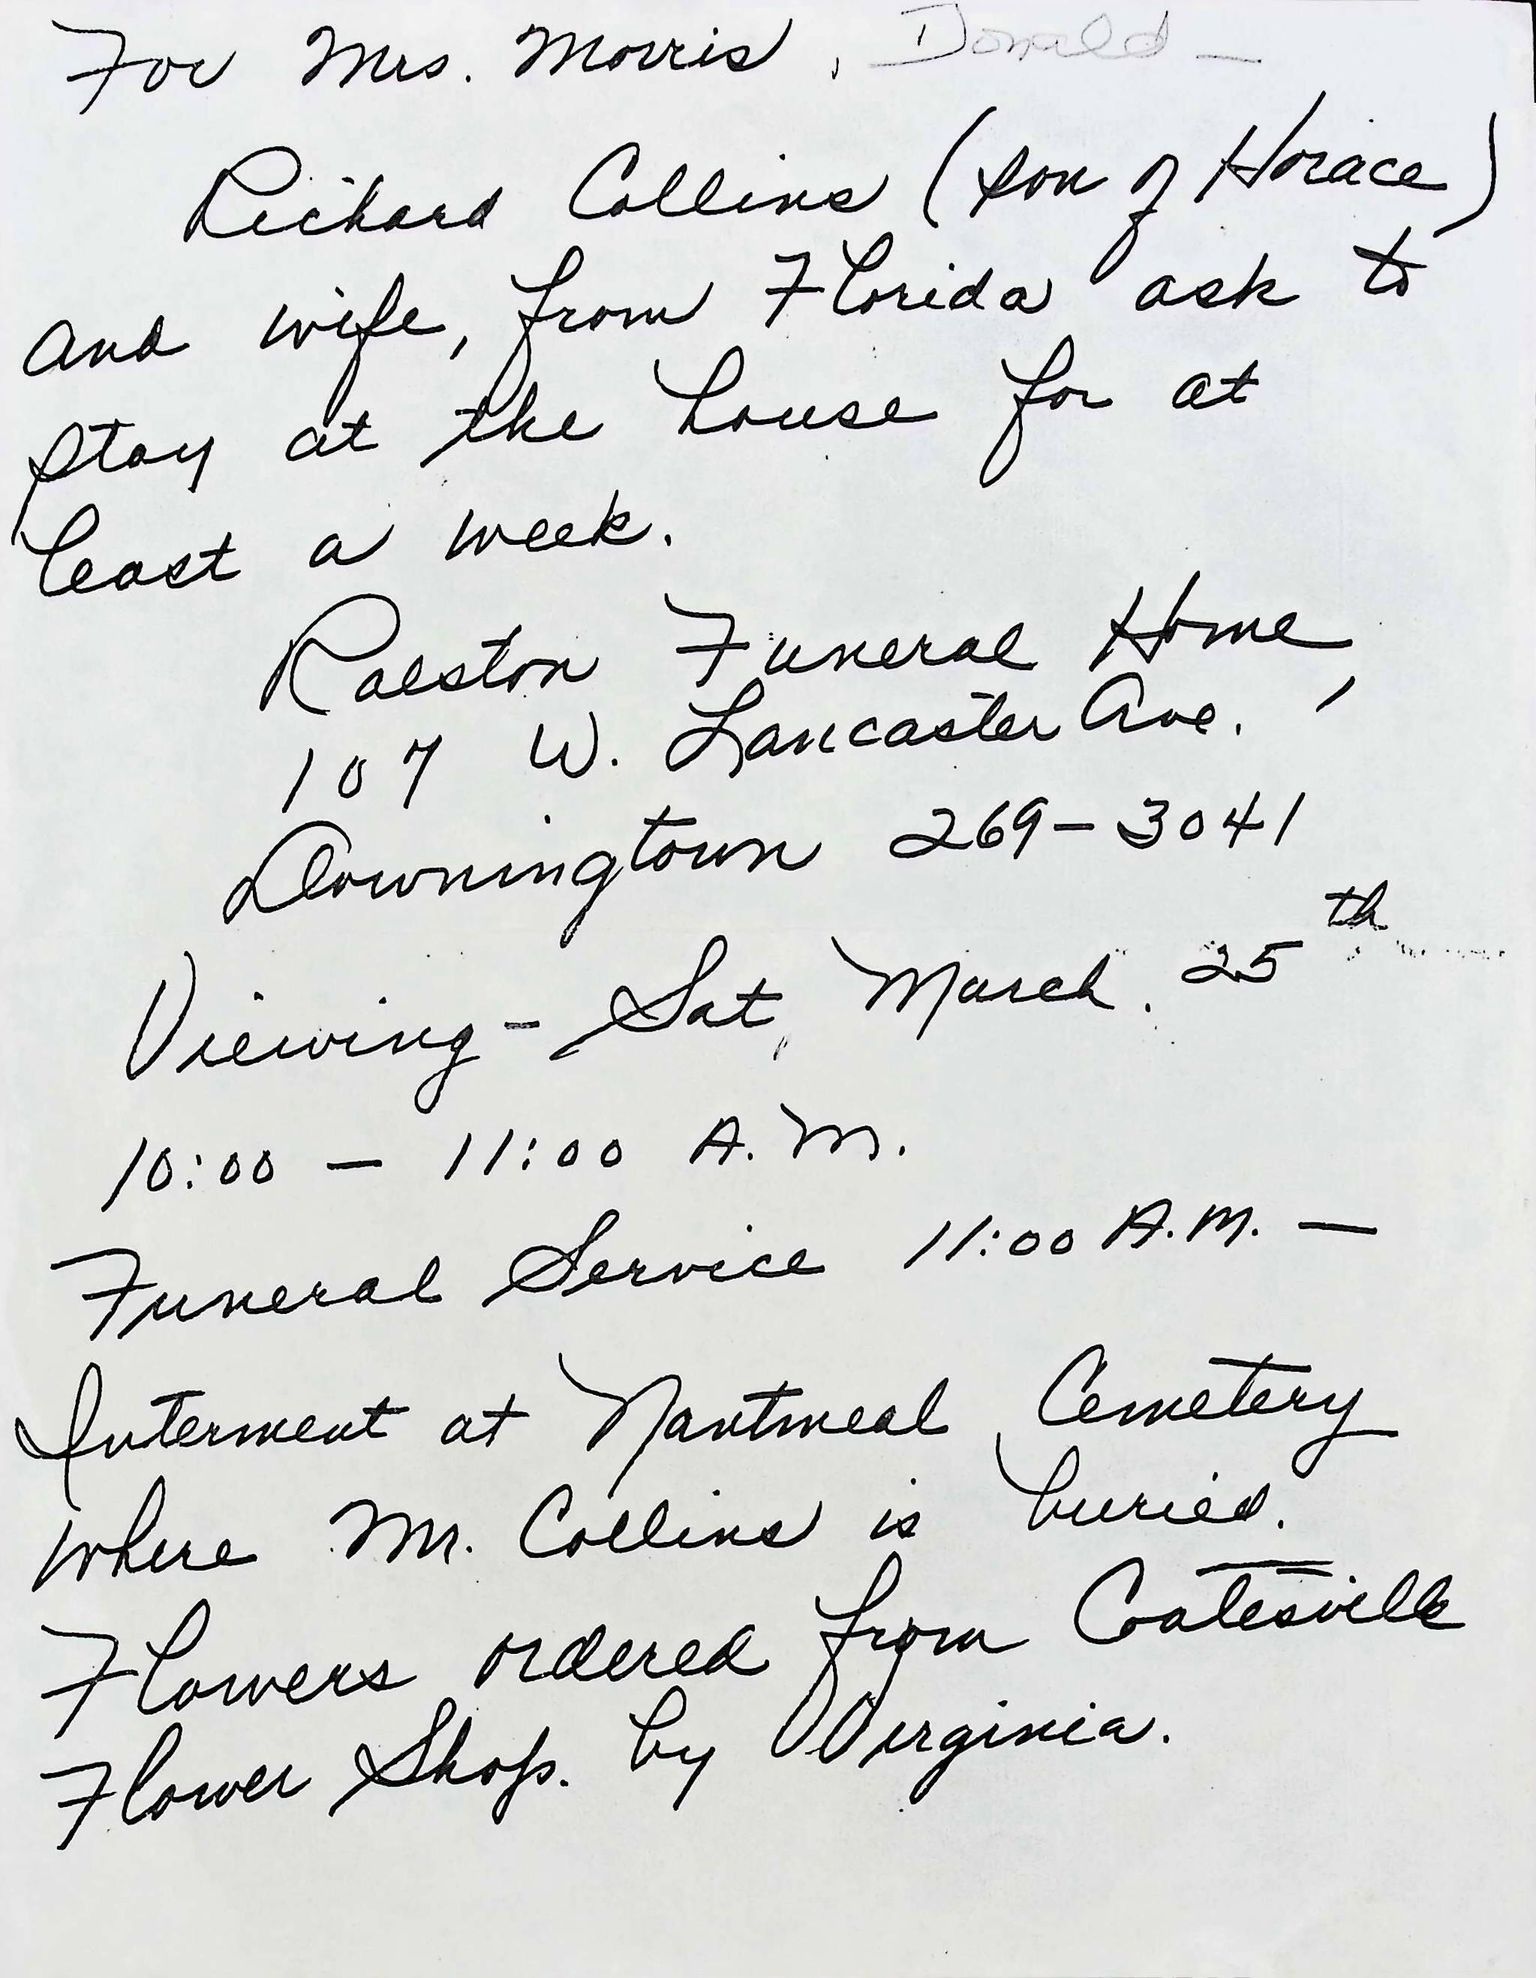 For Mrs. Morris, Donald –
Richard Collins (son of Horace)
and wife, from Florida ask to
stay at the house for at
least a week.
Ralston Funeral Home,
107 W. Lancaster Ave.
Downingtown 269-3041
Viewing - Sat, March. 25th
10:00 — 11:00 A.M.
Funeral Service 11:00 A.M. —
Interment at Nantmeal Cemetery
where Mr. Collins is buried.
Flowers ordered from Coatesville
Flower Shop. by Virginia.